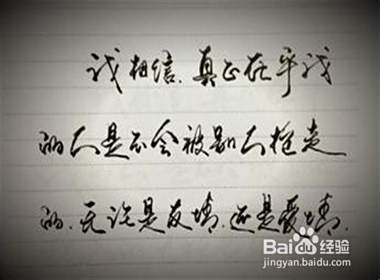 我相信.真正在乎我
的人是不会被别人抢走
的.无论是友情.还是爱情.
Baidu经验
jingyan.baidu.com